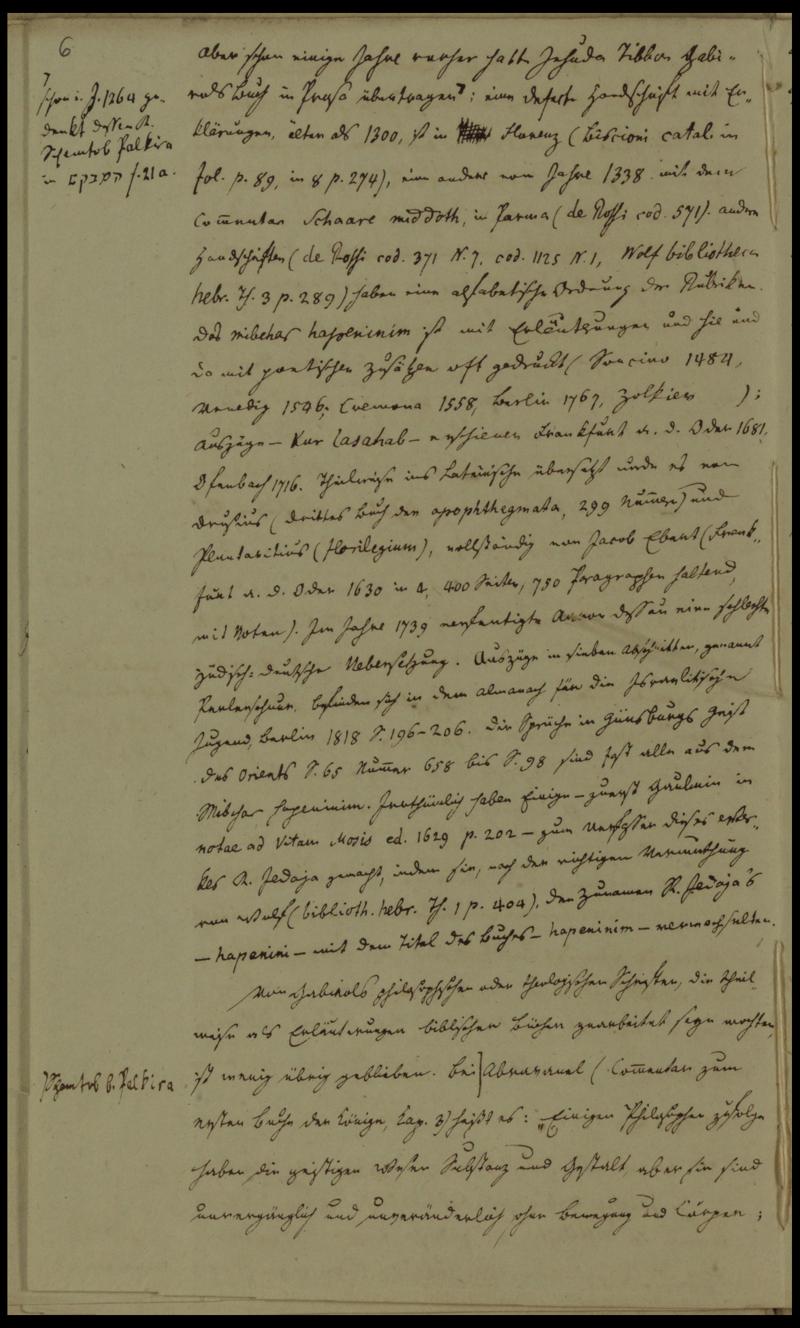 6
7
schon i. J. 1264 ge-
denkt dessen R.
Schemtob Palkira
in המבקש f. 21 a.
aber schon einige Jahre vorher hatte Jehuda Tibbon Gabi-
rols Buch in Prosa übertragen 7: eine defecte Handschrift mit Er-
klärungen, älter als 1300, ist in Florenz (Biscioni catal. in
fol. p. 89, in 8 p. 274), eine andere vom Jahre 1338 mit dem
Commentar Schaare middoth, in Parma (de Rossi cod. 571). andere
Handschriften (de Rossi cod. 371 N. 7, cod. 1125 N. 1, Wolf bibliotheca
hebr. Th. 3 p. 289) haben eine alfabetische Ordnung der Rubriken.
das mibchar hapeninim ist mit Erläuterungen und hie und
da mit poetischen Zusätzen oft gedruckt (Soncino 1484,
Venedig 1546, Cremona 1558, Berlin 1767, Zolkiew );
Auszüge — Kur lasahab — erschienen Frankfurt a. d. Oder 1681,
Offenbach 1716. Theilweise ins Lateinische übersetzt wurde es von
Drusius (drittes Buch der apophthegmata, 299 Nummern) und
Plantavitius (florilegium), vollständig von Jacob Ebert (Frank-
furt a. d. Oder 1630 in 4, 400 Seiten, 750 Paragraphen haltend,
mit Noten). Im Jahre 1739 verfertigte eine schlechte
jüdisch-deutsche Uebersetzung. Auszüge in sieben Abschnitten, genannt
Perlenschnur, befinden sich in dem Almanach für die Israelitische
Jugend, Berlin 1818 S. 196-206. Die Sprüche in Günsburgs Geist
des Orients S. 65 Nummer 658 bis S. 98 sind fast alle aus dem
Mibchar hapeninim. Irrthümlich haben Einige — zuerst Gaulmin in
notae ad vitam Mosis ed. 1629 p. 202 — zum Verfasser dieses Wer-
kes R. Jedaja gemacht, indem sie, nach der richtigen Vermuthung
von Wolf (biblioth. hebr. Th. 1 p. 404), den Zunamen R. Jedaja's
— hapenini — mit dem Titel des Buches — hapeninim — verwechselten.
Von Gabirols philosophischen oder theologischen Schriften, die theil-
weise als Erläuterungen biblischer Bücher gearbeitet seyn mochten,
Schemtob b. Palkira
ist wenig übrig geblieben. Bei Abravanel (Commentar zum
ersten Buche der Könige, Kap. 3) heißt es: „Einigen Philosophen zufolge
haben die geistigen Wesen Substanz und Gestalt, aber sie sind
unvergänglich und unveränderlich, ohne Bewegung und Körper;